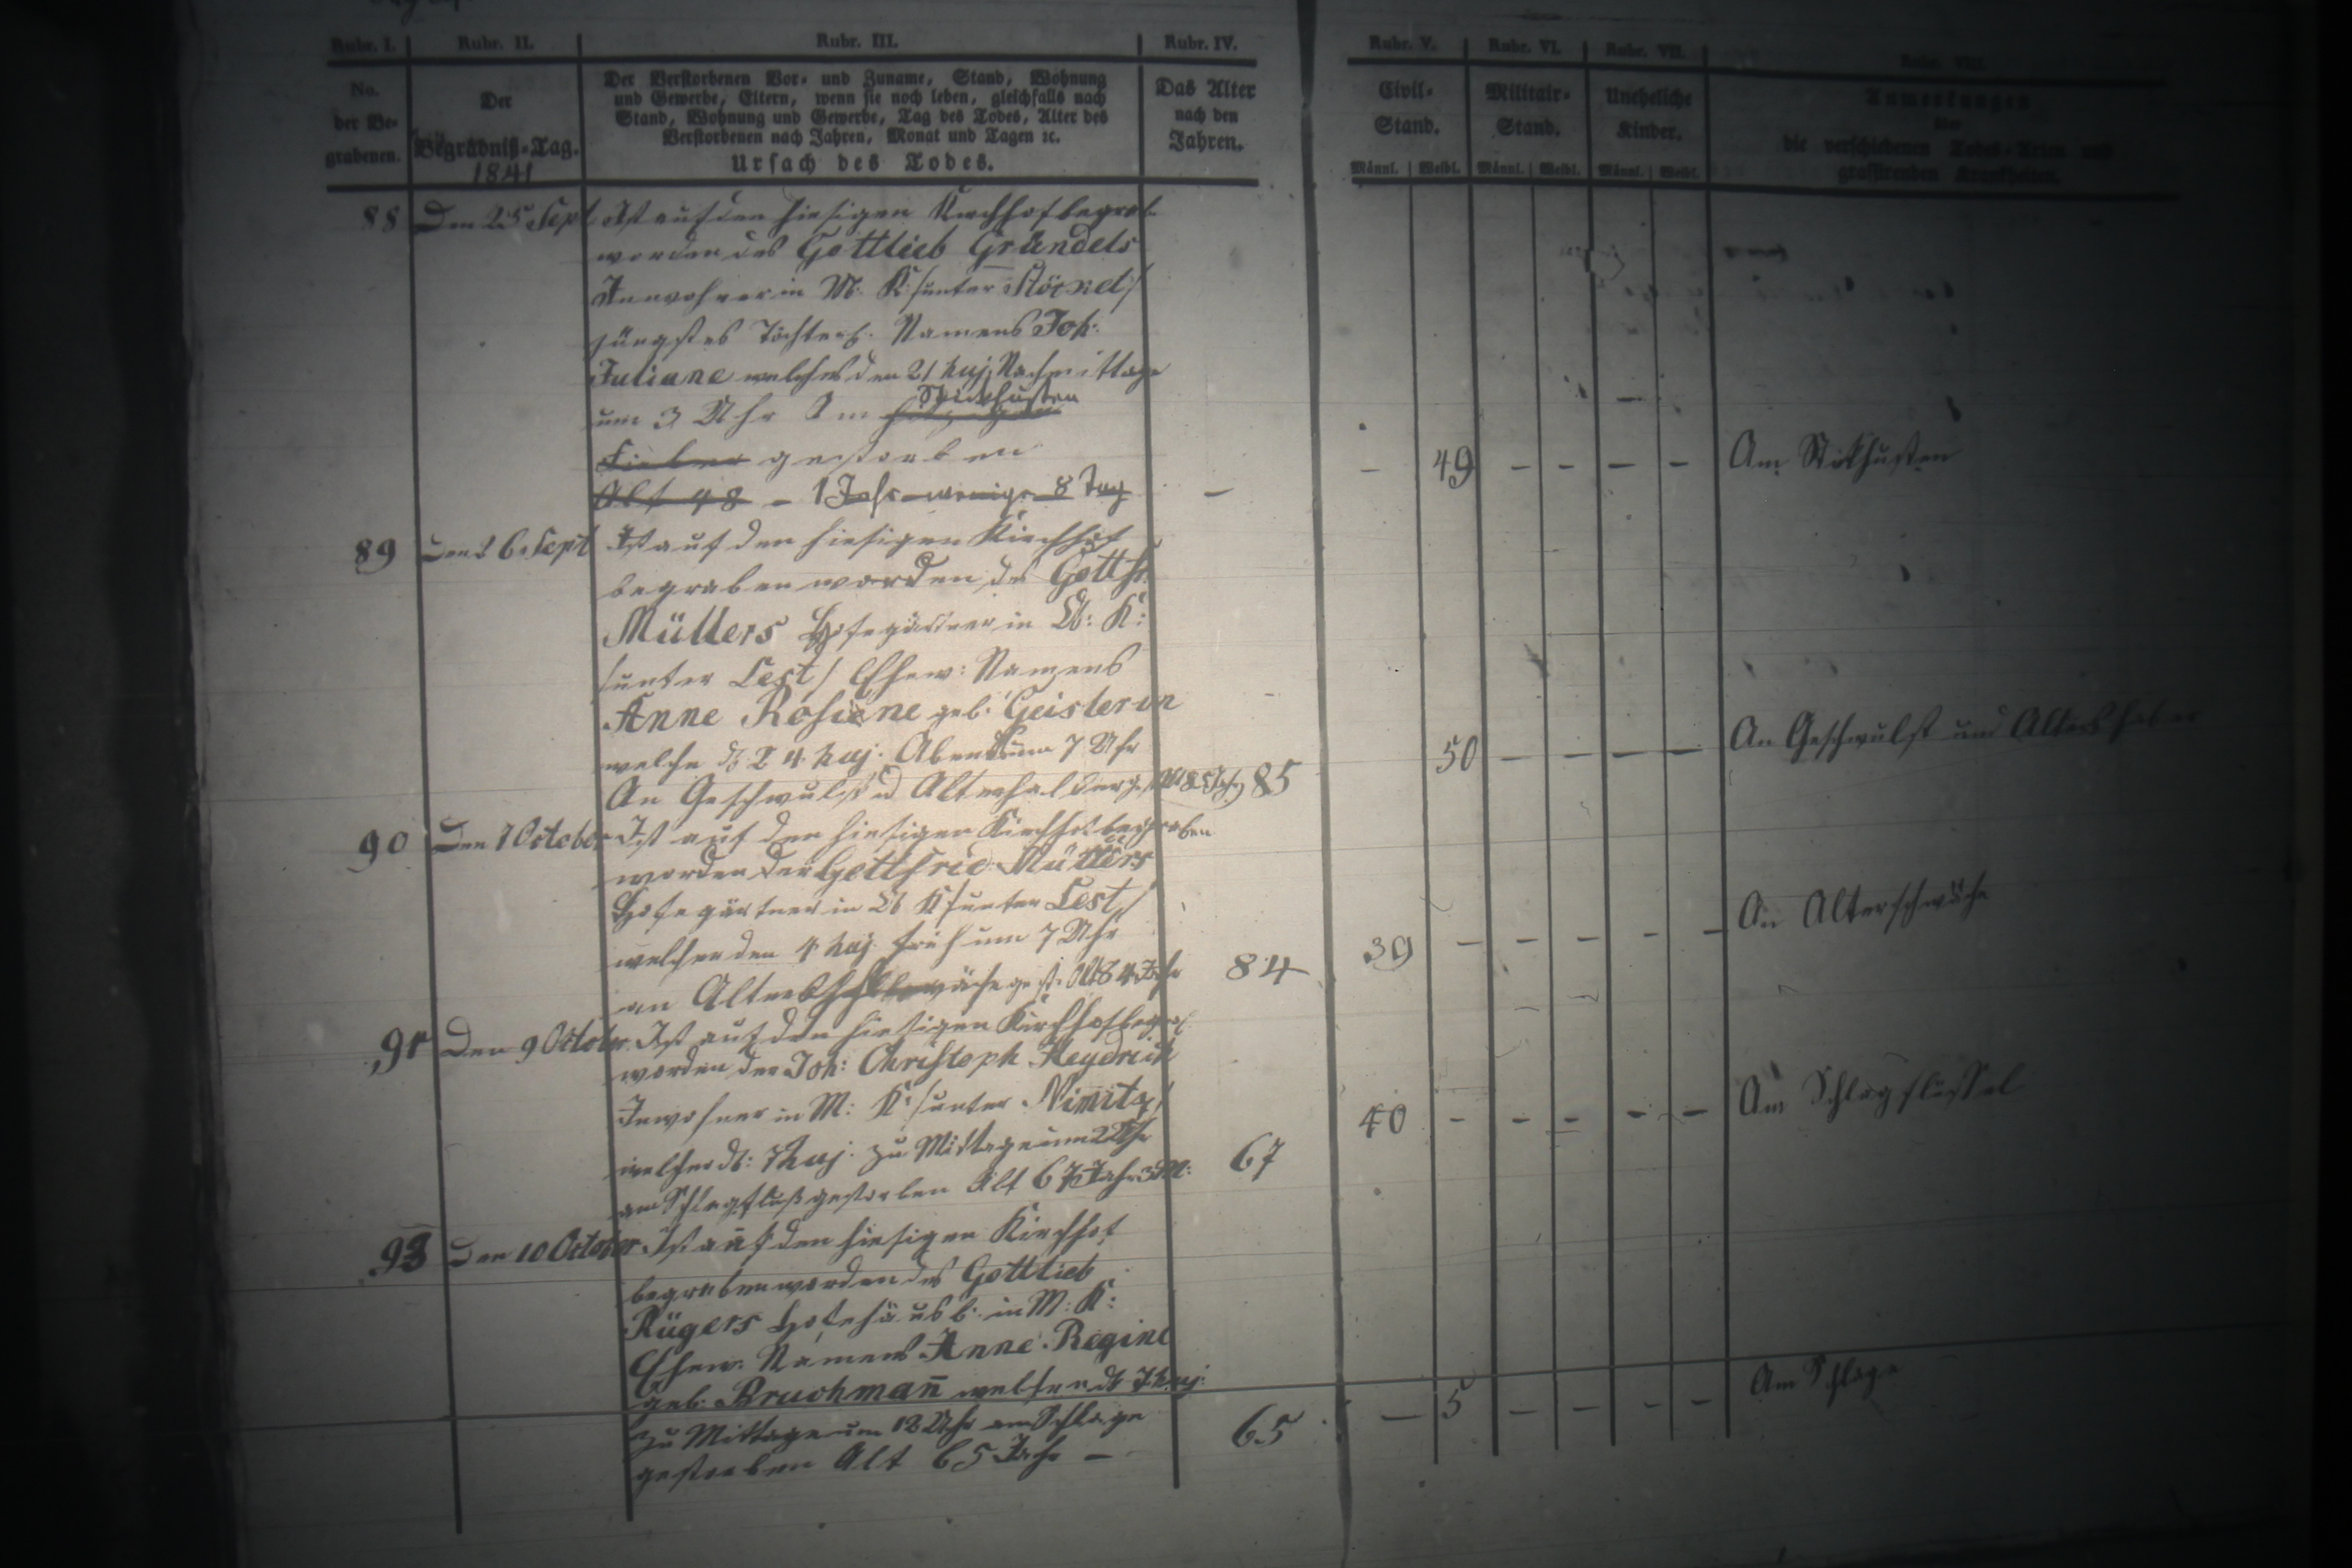 Rubr. I. Rubr. II. Rubr. III. Rubr. IV. Rubr. V. Rubr. VI. Rubr. VII. Rubr. VIII.
No.
der Be-
grabenen.
Der
Begräbniß-Tag.
1841
Der Verstorbenen Vor- und Zuname, Stand, Wohnung
und Gewerbe, Eltern, wenn sie noch leben, gleichfalls nach
Stand, Wohnung und Gewerbe, Tag des Todes, Alter des
Verstorbenen nach Jahren, Monat und Tagen ꝛc.
Ursach des Todes.
Das Alter
nach den
Jahren.
Civil-
Stand.
Männl. Weibl.
Militair-
Stand.
Männl. Weibl.
Uneheliche
Kinder.
Männl. Weibl.
Anmerkungen
über
die verschiedenen Todes-Arten und
grassirenden Krankheiten.
88 Den 25 Sept Ist auf den hiesigen Kirchhof begrab.
worden des Gottlieb Gründels
Inwohner in M: K: /unter Stöckel/
jüngstes Töchterl. Namens Joh:
Juliane welches den 21 huj. Nachmittage
um 3 Uhr Am Stickhusten
Fieber gestorben
Alt 48 – 1 Jahr wenig. 8 Tag –
– 49 – – – – Am Stikhusten
89 Den 26 Sept Ist auf den hiesigen Kirchhof
begraben worden des Gottfr.
Müllers Hofegärtner in Ob: K:
/unter Lest/ Ehew: Namens
Anne Rosiene geb: Geisterin
welche d. 24 huj. Abends um 7 Uhr
An Geschwulst u Altershalber gest. Alt 85 Jahr 85
50 – – – – An Geschwulst und Altershalber
90 Den 7 October Ist auf den hiesigen Kirchhof begraben
worden der Gottfried Müllers
Hofegärtner in Ob K /unter Lest/
welcher den 4 huj. früh um 7 Uhr
an Altersschwäche gest. Alt 84 Jahr 84
39 – – – – – An Alterschwäche
91 Den 9 October Ist auf den hiesigen Kirchhof begrab
worden der Joh: Christoph Heydrich
Inwohner in M: K: /unter Nimitz/
welcher d: 7 huj. zu Mittage um 2 Uhr
am Schlagfluß gestorben Alt 67 Jahr 3 M: 67
40 – – – – – Am Schlagflussel
92 Den 10 October Ist auf den hiesigen Kirchhof
begraben worden des Gottlieb
Rügers Hofehäusl. in M: K:
Ehew. Namens Anne Regine
geb: Bruchman̄ welche d 7 huj:
zu Mittage um 12 Uhr am Schlage
gestorben Alt 65 Jahr – 65
– 5 – – – – Am Schlage